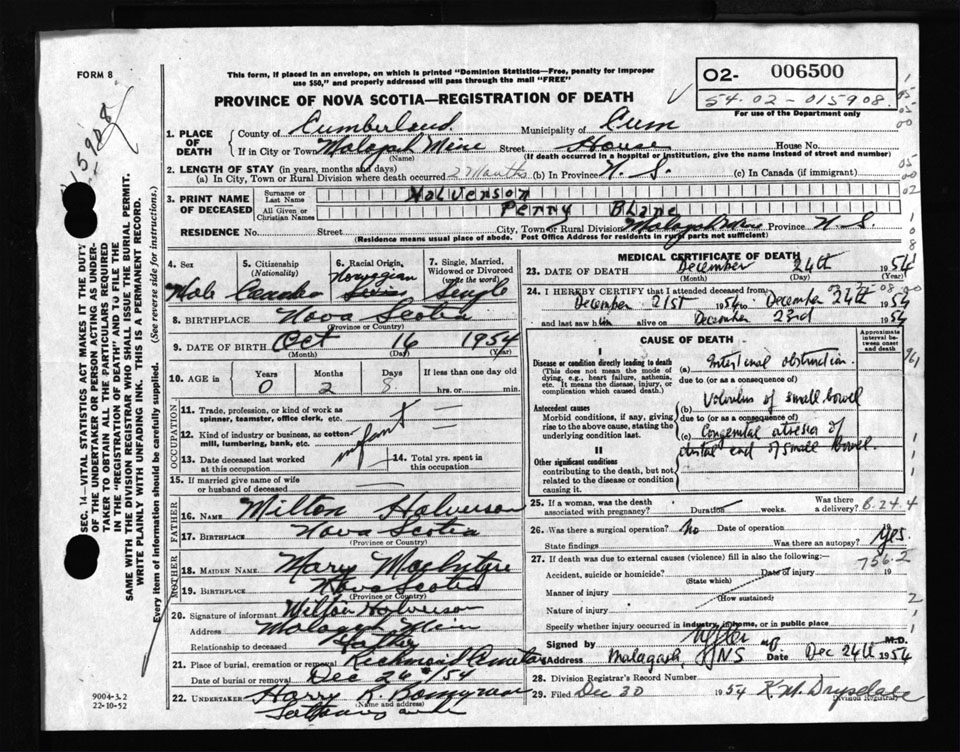 FORM 8
This form, if placed in an envelope, on which is printed "Dominion Statistics—Free, penalty for improper
use $50," and properly addressed will pass through the mail "FREE"
PROVINCE OF NOVA SCOTIA—REGISTRATION OF DEATH
O2- 006500
54-02-015908
For use of the Department only
15908
1. PLACE OF DEATH
County of Cumberland Municipality of Cum
If in City or Town Malagash Mine Street House House No.
(Name) (If death occurred in a hospital or institution, give the name instead of street and number)
2. LENGTH OF STAY (in years, months and days)
(a) In City, Town or Rural Division where death occurred 2 Months (b) In Province N. S. (c) In Canada (if immigrant)
3. PRINT NAME OF DECEASED
Surname or Last Name Halverson
All Given or Christian Names Penny Blane
RESIDENCE No. Street City, Town or Rural Division Malagash Mine Province N. S.
(Residence means usual place of abode. Post Office Address for residents in rural parts not sufficient)
4. Sex Male
5. Citizenship (Nationality)
6. Racial Origin, Norwegian
7. Single, Married, Widowed or Divorced (write the word) Single
8. BIRTHPLACE Nova Scotia
(Province or Country)
9. DATE OF BIRTH Oct 16 1954
(Month) (Day) (Year)
10. AGE in Years Months Days If less than one day old
0 2 8 hrs. or min.
OCCUPATION
11. Trade, profession, or kind of work as spinner, teamster, office clerk, etc.
12. Kind of industry or business, as cotton-mill, lumbering, bank, etc.
infant
13. Date deceased last worked at this occupation
14. Total yrs. spent in this occupation
15. If married give name of wife or husband of deceased
FATHER
16. NAME Milton Halverson
17. BIRTHPLACE Nova Scotia
(Province or Country)
MOTHER
18. MAIDEN NAME Mary MacIntyre
19. BIRTHPLACE Nova Scotia
(Province or Country)
20. Signature of informant Milton Halverson
Address Malagash Mine
Relationship to deceased Father
21. Place of burial, cremation or removal Richmond
Date of burial or removal Dec 24th/54
22. UNDERTAKER Harry R.
(Name and address)
MEDICAL CERTIFICATE OF DEATH
23. DATE OF DEATH December 24th 1954
(Month) (Day) (Year)
24. I HEREBY CERTIFY that I attended deceased from:
December 21st 1954 to December 24th 1954
and last saw him alive on December 23rd 1954
CAUSE OF DEATH
Approximate interval between onset and death
I
Disease or condition directly leading to death
(This does not mean the mode of dying, e.g., heart failure, asthenia, etc. It means the disease, injury, or complication which caused death.)
(a) Intestinal obstruction.
due to (or as a consequence of)
Antecedent causes
Morbid conditions, if any, giving rise to the above cause, stating the underlying condition last.
(b) Volvulus of small bowel
due to (or as a consequence of)
(c) Congenital atresia of
distal end of small bowel.
II
Other significant conditions
contributing to the death, but not related to the disease or condition causing it.
25. If a woman, was the death associated with pregnancy? Duration weeks. Was there a delivery? B-24-4
26. Was there a surgical operation? No Date of operation
State findings Was there an autopsy? Yes.
27. If death was due to external causes (violence) fill in also the following:— 756-2
Accident, suicide or homicide? Date of injury 19
(State which)
Manner of injury
(How sustained)
Nature of injury
Specify whether injury occurred in industry, in home, or in public place
Signed by M.D.
Address Malagash, NS Date Dec 24th 1954
28. Division Registrar's Record Number
29. Filed Dec 30 1954 K. M. Drysdale
Division Registrar
SEC. 14—VITAL STATISTICS ACT MAKES IT THE DUTY
OF THE UNDERTAKER OR PERSON ACTING AS UNDER-
TAKER TO OBTAIN ALL THE PARTICULARS REQUIRED
IN THE "REGISTRATION OF DEATH" AND TO FILE THE
SAME WITH THE DIVISION REGISTRAR WHO SHALL ISSUE THE BURIAL PERMIT.
WRITE PLAINLY WITH UNFADING INK. THIS IS A PERMANENT RECORD.
Every item of information should be carefully supplied. (See reverse side for instructions.)
9004-3.2
22-10-52